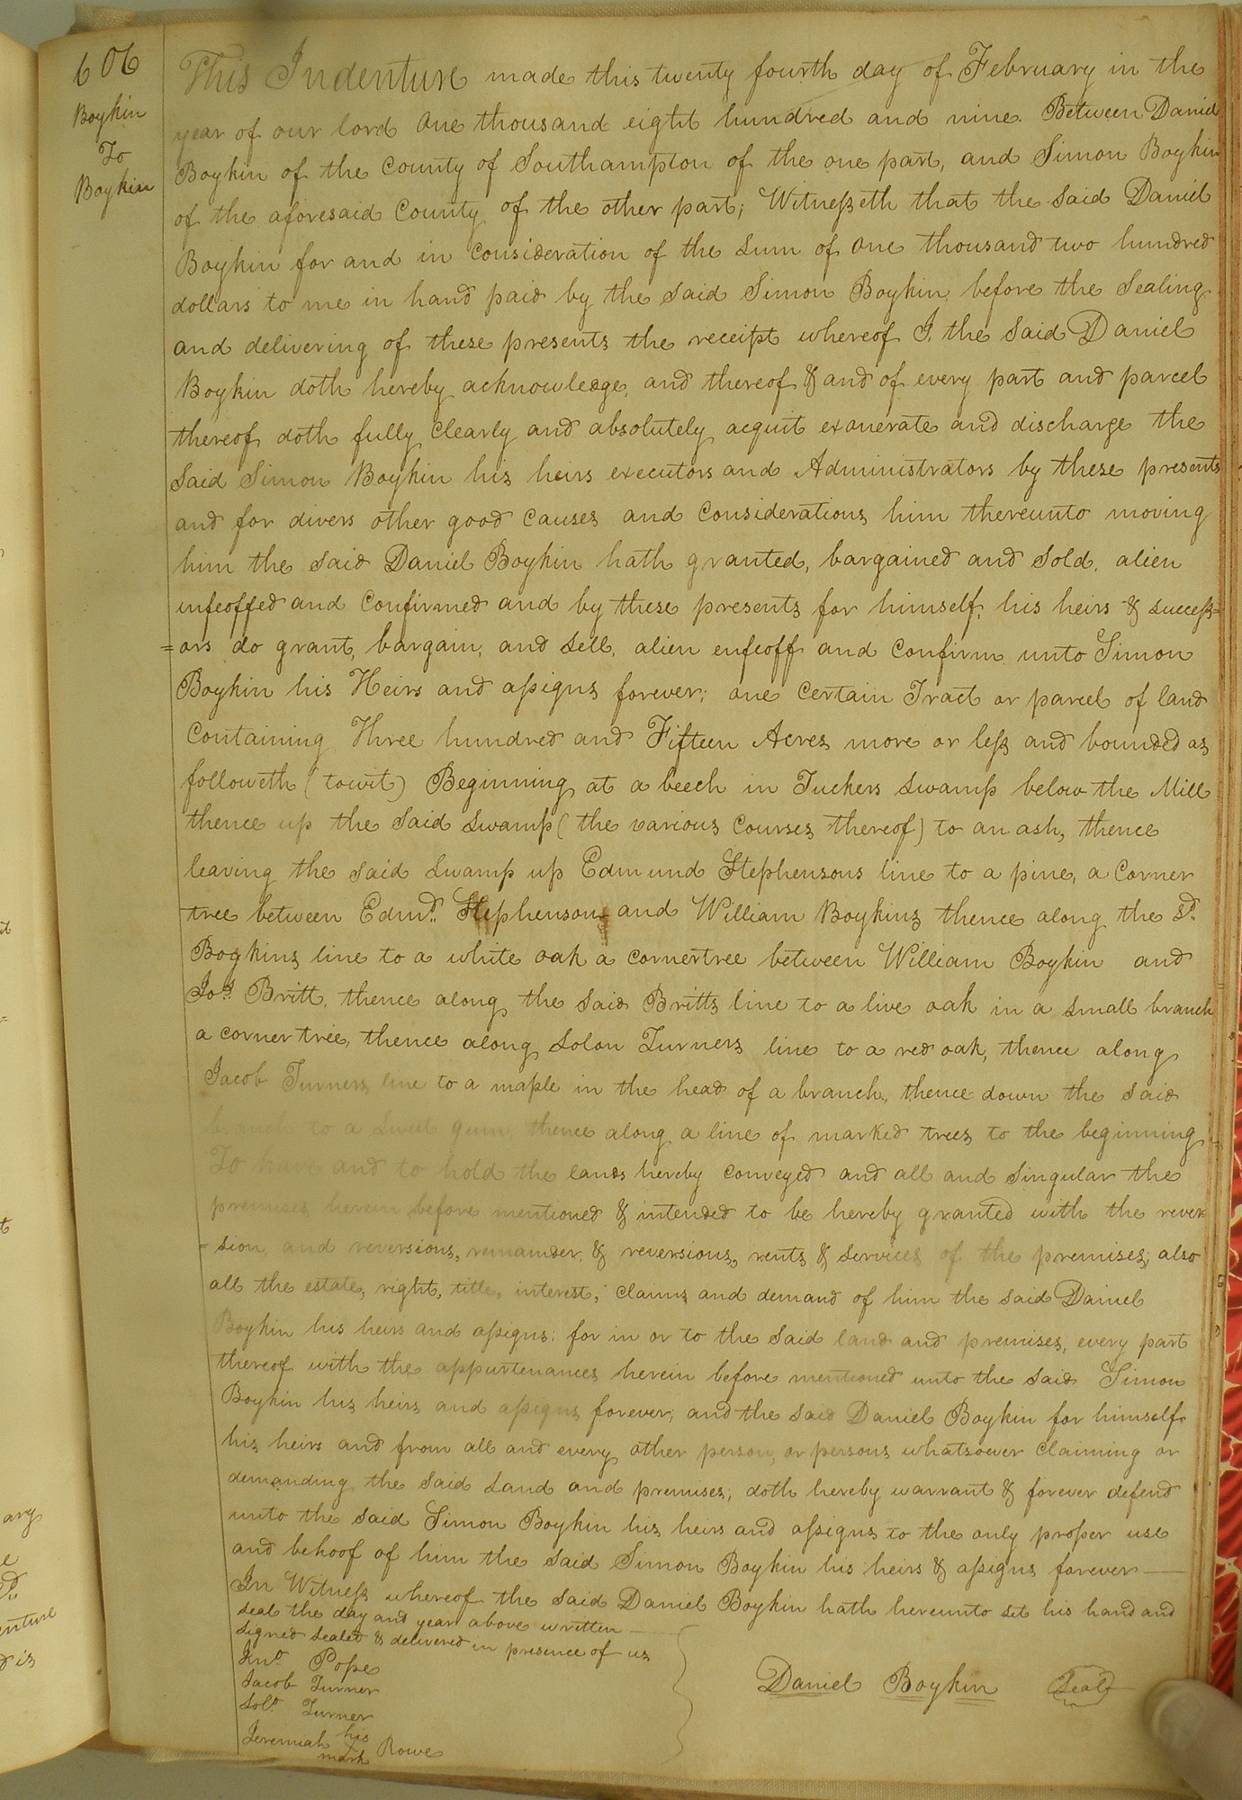 606
Boykin
To
Boykin
This Indenture made this twenty fourth day of February in the
year of our lord One thousand eight hundred and nine. Between Daniel
Boykin of the County of Southampton of the one part, and Simon Boykin
of the aforesaid County of the other part; Witnesseth that the said Daniel
Boykin for and in Consideration of the sum of One thousand two hundred
dollars to me in hand paid by the said Simon Boykin, before the Sealing
and delivering of these presents the receipt whereof I, the said Daniel
Boykin doth hereby acknowledge, and thereof & and of every part and parcel
thereof doth fully clearly and absolutely acquit exonerate and discharge the
Said Simon Boykin his heirs executors and Administrators by these presents
and for divers other good causes and considerations him thereunto moving
him the said Daniel Boykin hath granted, bargained and Sold, alien
infeoffed and Confirmed and by these presents for himself, his heirs & success=
=ors do grant, bargain, and sell, alien enfeoff and Confirm unto Simon
Boykin his Heirs and assigns forever; one Certain Tract or parcel of land
Containing Three hundred and Fifteen Acres more or less and bounded as
followeth (towit) Beginning at a beech in Tuckers Swamp below the Mill
thence up the said swamp (the various Courses thereof) to an ash, thence
leaving the said swamp up Edmund Stephensons line to a pine, a Corner
tree between Edmd. Stephenson and William Boykins thence along the sd.
Boykins line to a white oak a cornertree between William Boykin and
Jos. Britt, thence along the said Britts line to a live oak in a small branch
a corner tree, thence along Solon Turners line to a red oak, thence along
Jacob Turners line to a maple in the head of a branch, thence down the said
branch to a sweet gum, thence along a line of marked trees to the beginning
To have and to hold the lands hereby conveyed and all and singular the
premises herein before mentioned & intended to be hereby granted with the rever
=sion and reversions, remainder & reversions, rents & services of the premises, also
all the estate, right, title, interest, claims and demand of him the said Daniel
Boykin his heirs and assigns; for in or to the said land and premises, every part
thereof with the appurtenances herein before mentioned unto the said Simon
Boykin his heirs and assigns forever, and the said Daniel Boykin for himself
his heirs and from all and every other person, or persons whatsoever claiming or
demanding the said Land and premises, doth hereby warrant & forever defend
unto the said Simon Boykin his heirs and assigns to the only proper use
and behoof of him the said Simon Boykin his heirs & assigns forever
In Witness whereof the said Daniel Boykin hath hereunto set his hand and
seal the day and year above written
signed sealed & delivered in presence of us
Jno. Pope
Jacob Turner
Solo. Turner
Jeremiah his mark Rowe
Daniel Boykin Seal